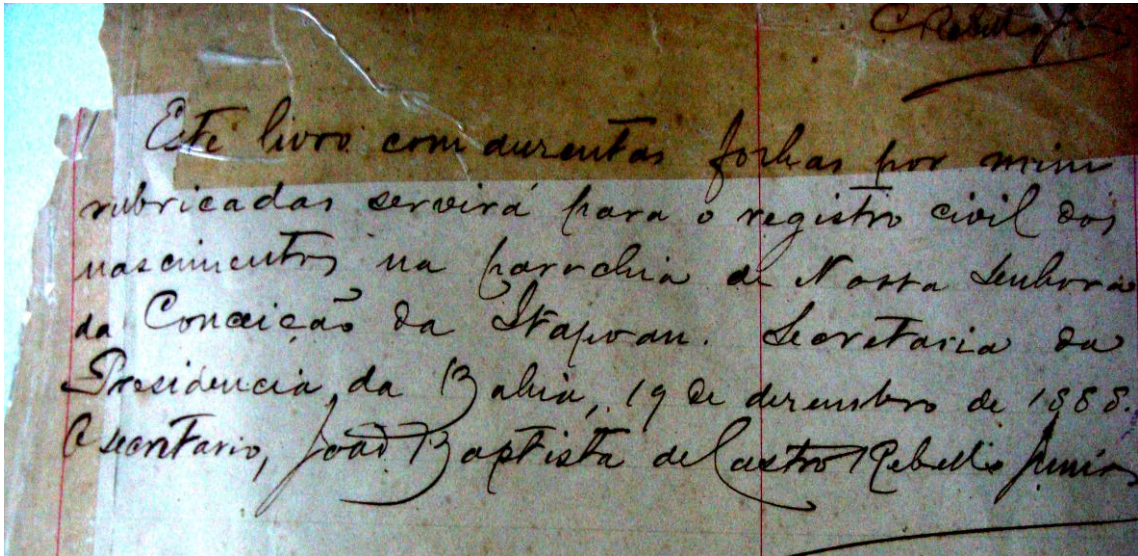 C Rebello Jor
Este livro com duzentas folhas por mim
rubricadas servirá para o registro civil dos
nascimentos na parochia de Nossa Senhora
da Conceição da Itapoan. Secretaria da
Presidencia da Bahia, 19 de dezembro de 1888.
O secretario, João Baptista de Castro Rebello Junior